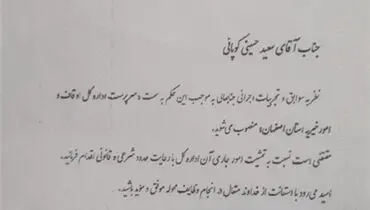 جناب آقای سعید حسینی کوپائی
نظر به سوابق و تجربیات اجرائی جنابعالی به موجب این حکم به سمت «سرپرست اداره کل اوقاف و
امور خیریه استان اصفهان» منصوب می‌شوید.
مقتضی است نسبت به تمشیت امور جاری آن اداره کل با رعایت حدود شرعی و قانونی اقدام فرمائید.
امید می‌رود با استعانت از خداوند متعال در انجام وظایف محوله موفق و مؤید باشید.